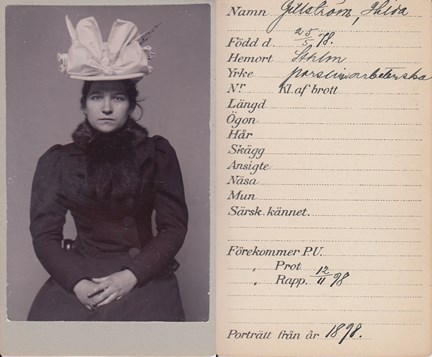 Namn Gellström, Hilda
Född d. 25/5 78.
Hemort Sthlm
Yrke porslinsarbeterska
Nr Kl. af brott
Längd
Ögon
Hår
Skägg
Ansigte
Näsa
Mun
Särsk. kännet.
Förekommer P.U.
„ Prot.
„ Rapp. 12/11 98
Porträtt från år 1898.